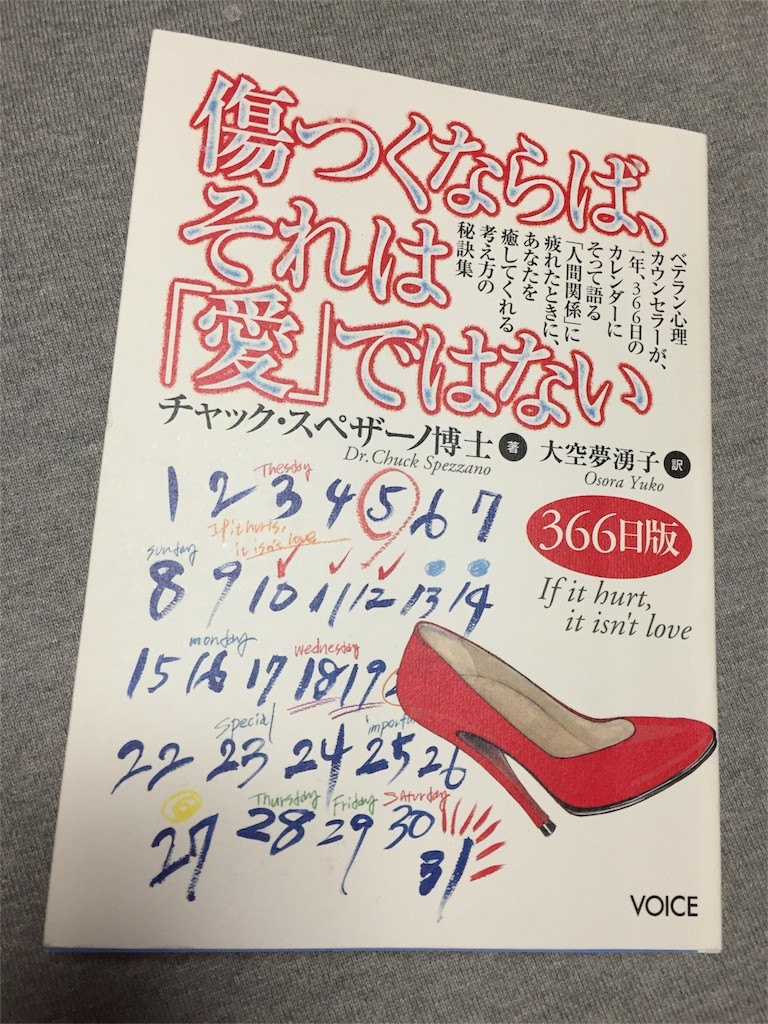 傷つくならば、
それは
「愛」ではない
ベテラン心理
カウンセラーが、
一年、366日の
カレンダーに
そって語る
「人間関係」に
疲れたときに、
あなたを
癒してくれる
考え方の
秘訣集
チャック・スペザーノ博士 著 大空夢湧子 訳
Dr. Chuck Spezzano Osora Yuko
366日版
If it hurt,
it isn't love
Tuesday
1 2 3 4 5 6 7
If it hurts,
sunday it isn't love
8 9 10 11 12 13 14
monday wednesday
15 16 17 18 19
special importa
22 23 24 25 26
Thursday Friday Saturday
27 28 29 30
31
VOICE